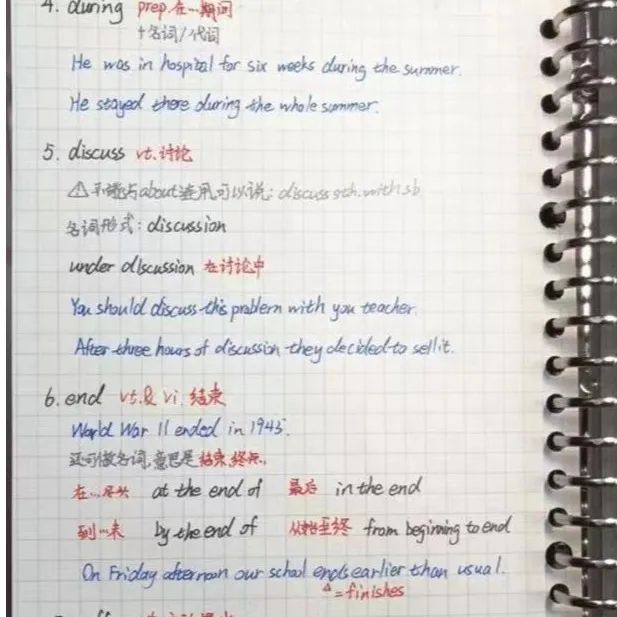 4. during prep. 在…期间
+名词/代词
He was in hospital for six weeks during the summer.
He stayed there during the whole summer.
5. discuss vt. 讨论
⚠不能与about连用,可以说: discuss sth. with sb
名词形式: discussion
under discussion 在讨论中
You should discuss this problem with you teacher.
After three hours of discussion they decided to sell it.
6. end vt.& vi. 结束
World War II ended in 1945.
还可做名词,意思是结束,终点.
在…尽头 at the end of 最后 in the end
到…末 by the end of 从始至终 from beginning to end
On Friday afternoon our school ends earlier than usual.
△=finishes